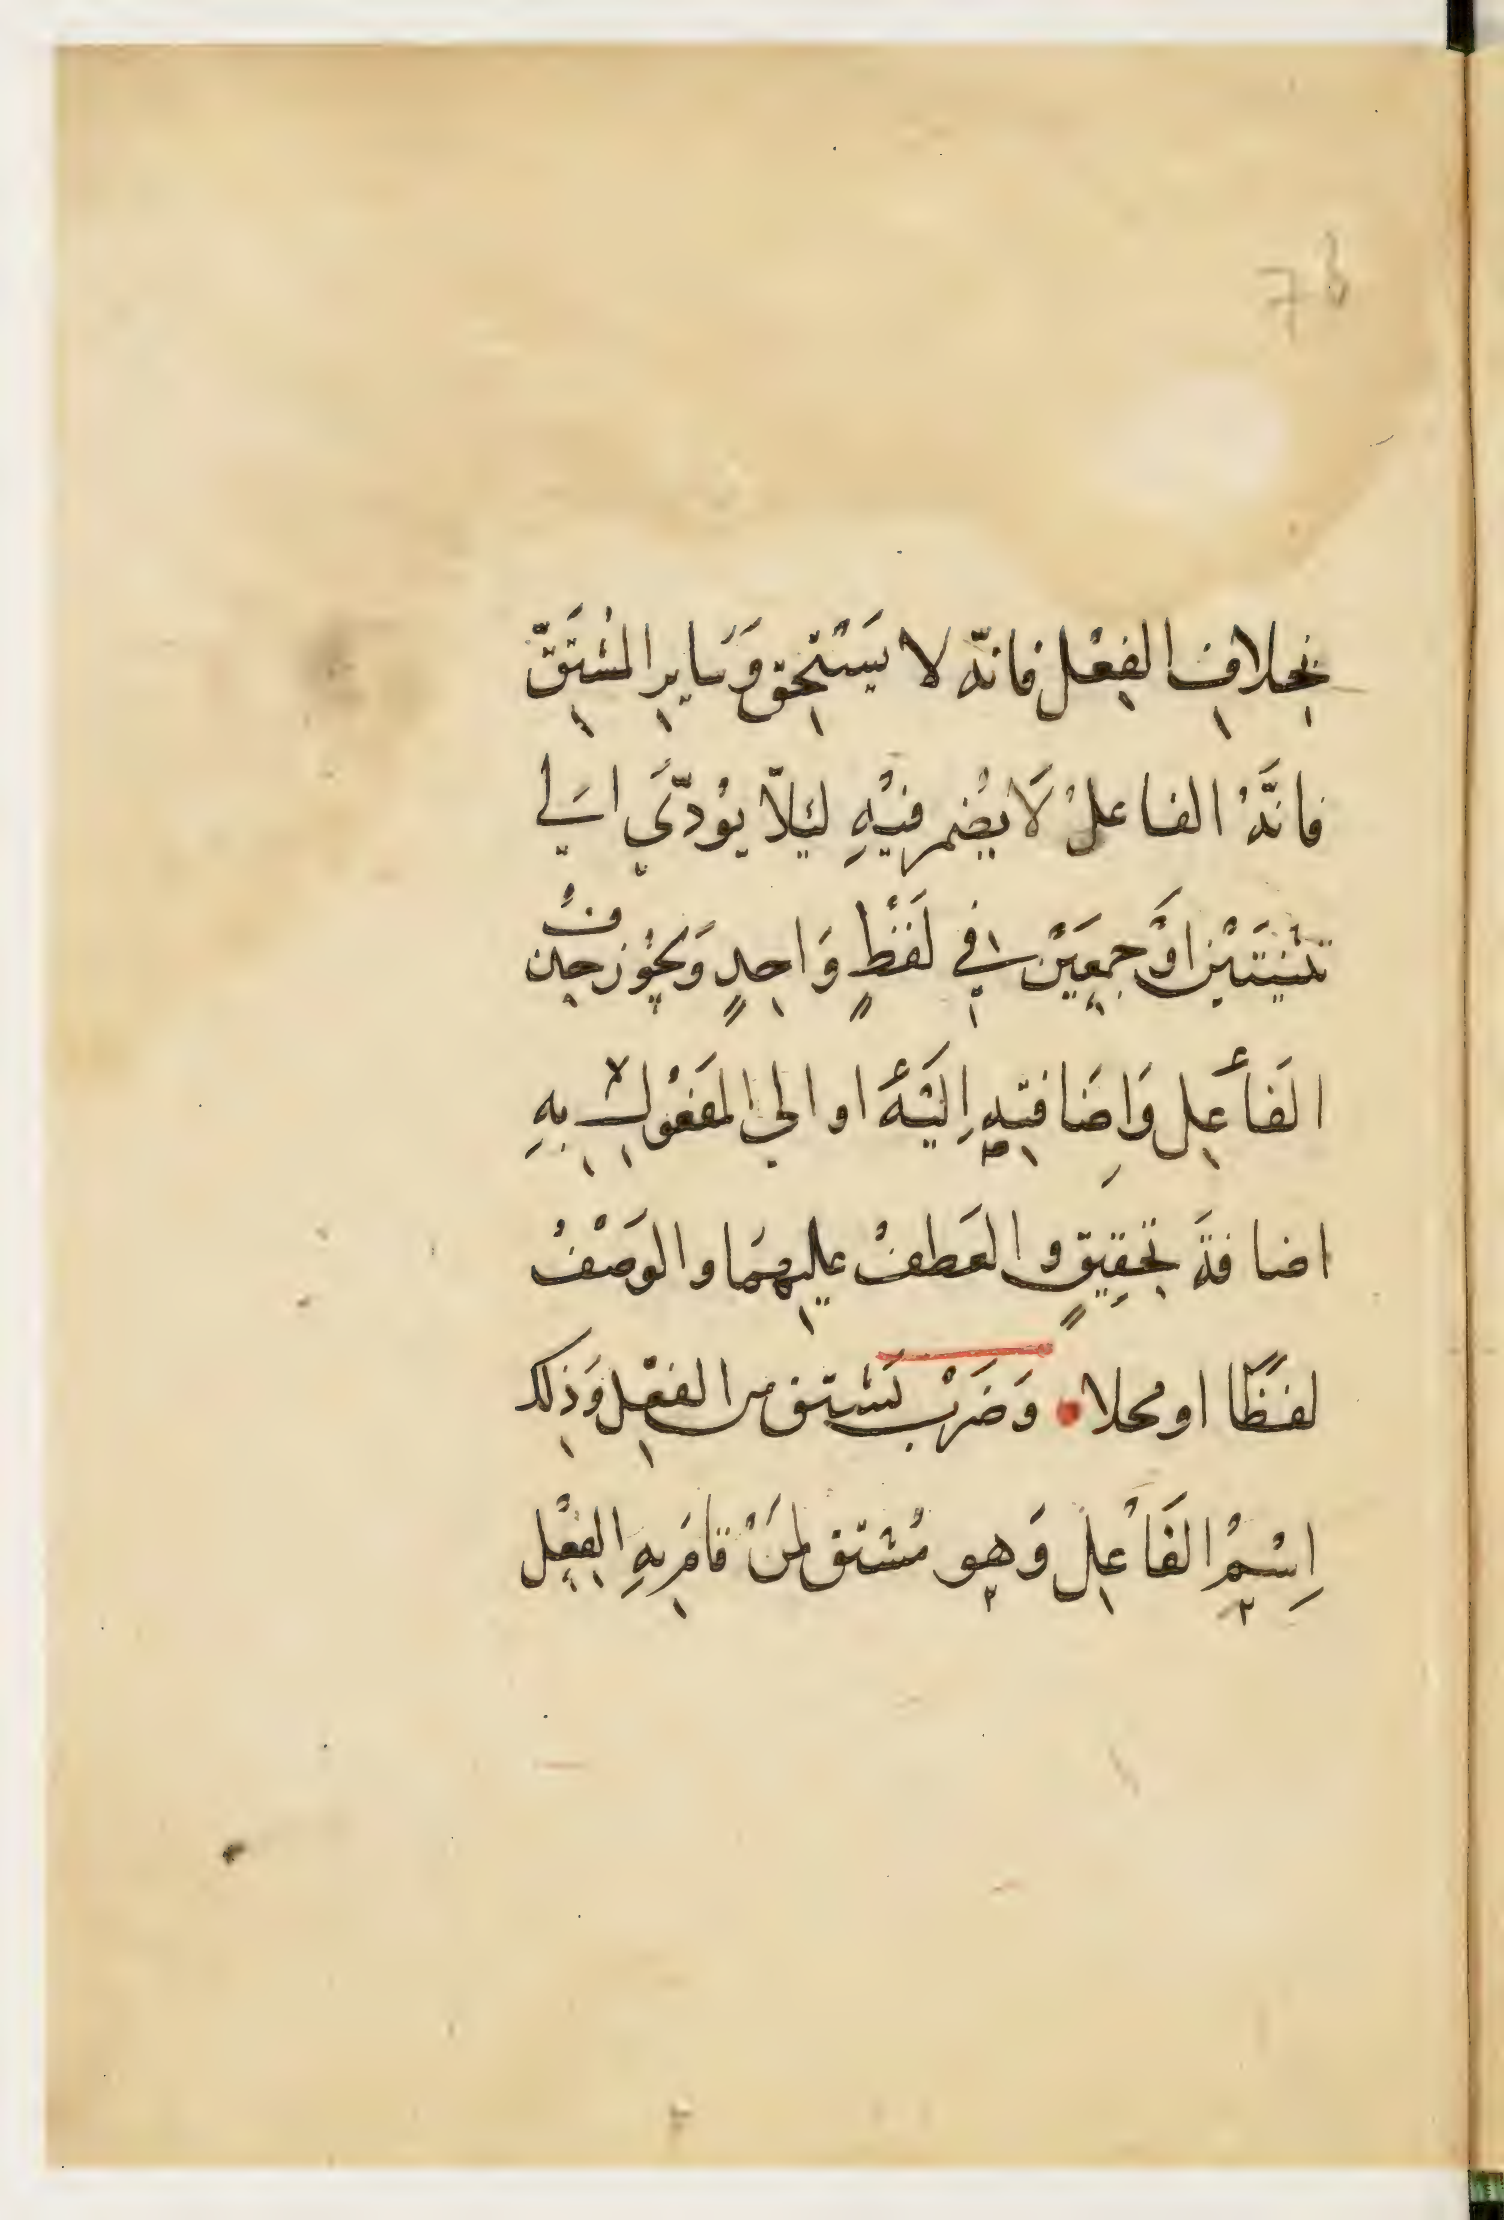 78
بخِلافِ الفِعْل فانّه لا يَسْتَحِق وَسَايرِ المُشتَقِّ
فانَّهُ الفاعلُ لَا يُضمر فيْهِ ليَلاّ يؤدّيَ اِلَي
تثنيَتَيْن اوْ جمعَيْن في لَفظٍ وَاحِدٍ وَيجُوز حذفُ
الفَاعِل وَاِضَافتِهِ اِليْهِ او الي المفعُولِ بهِ
اضافةَ تحقِيقٍ والعَطفُ عليهِمَا والوَصْفُ
لفظًا او محلا وَضَرْب يَشتق من الفعْل وَذلك
اِسْمُ الفَاعِل وَهو مُشتق لمنْ قامَ بهِ الفِعْل